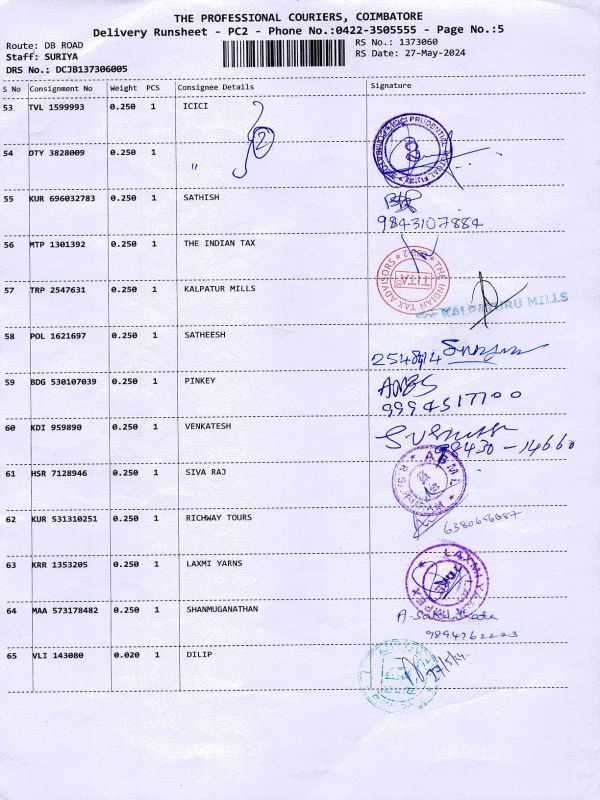 THE PROFESSIONAL COURIERS, COIMBATORE
Delivery Runsheet - PC2 - Phone No.:0422-3505555 - Page No.:5
Route: DB ROAD
RS No.: 1373060
Staff: SURIYA
RS Date: 27-May-2024
DRS No.: DCJB137306005
S No Consignment No Weight PCS Consignee Details Signature
53 TVL 1599993 0.250 1 ICICI
2
ICICI PRUDENTIAL MUTUAL FUND
54 DTY 3828009 0.250 1 "
55 KUR 696032783 0.250 1 SATHISH
9843107884
56 MTP 1301392 0.250 1 THE INDIAN TAX
THE INDIAN TAX ADVISORS
TITA
57 TRP 2547631 0.250 1 KALPATUR MILLS
KALPATURU MILLS
58 POL 1621697 0.250 1 SATHEESH
59 BDG 530107039 0.250 1 PINKEY
9994517700
60 KDI 959890 0.250 1 VENKATESH
98430-14660
61 HSR 7128946 0.250 1 SIVA RAJ
62 KUR 531310251 0.250 1 RICHWAY TOURS
63 KRR 1353205 0.250 1 LAXMI YARNS
LAXMI YARN
64 MAA 573178482 0.250 1 SHANMUGANATHAN
65 VLI 143080 0.020 1 DILIP